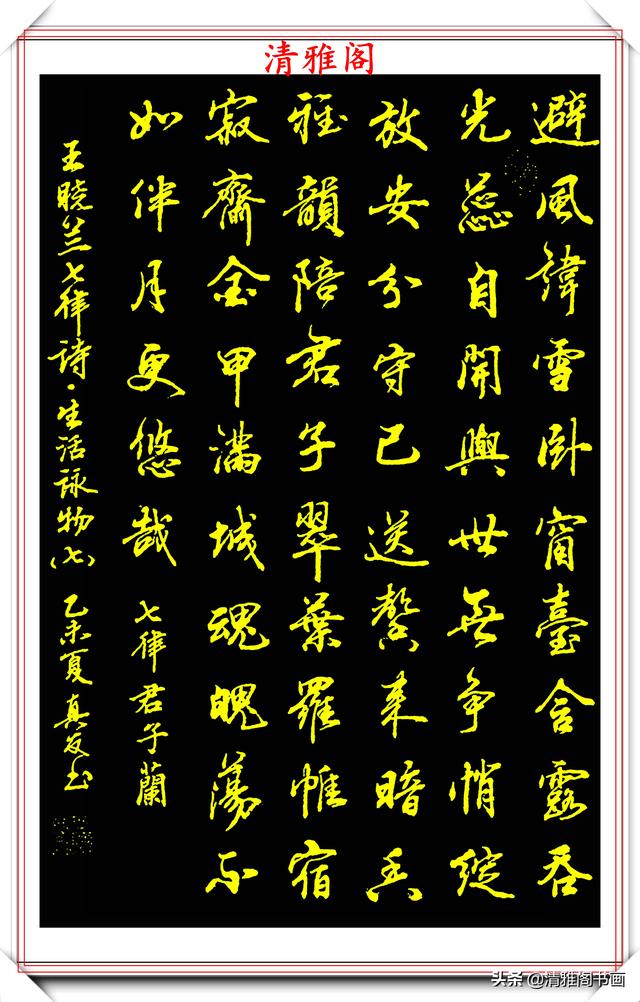 清雅阁
避風諱雪卧窗臺含露吞
光蕊自開與世無争悄綻
放安分守已送馨来暗香
雅韻陪君子翠葉羅帷宿
寂齋金甲滿城魂魄蕩不
如伴月更悠哉 七律君子蘭
王晓兰七律诗·生活詠物(七) 乙未夏真友书
头条@清雅阁书画